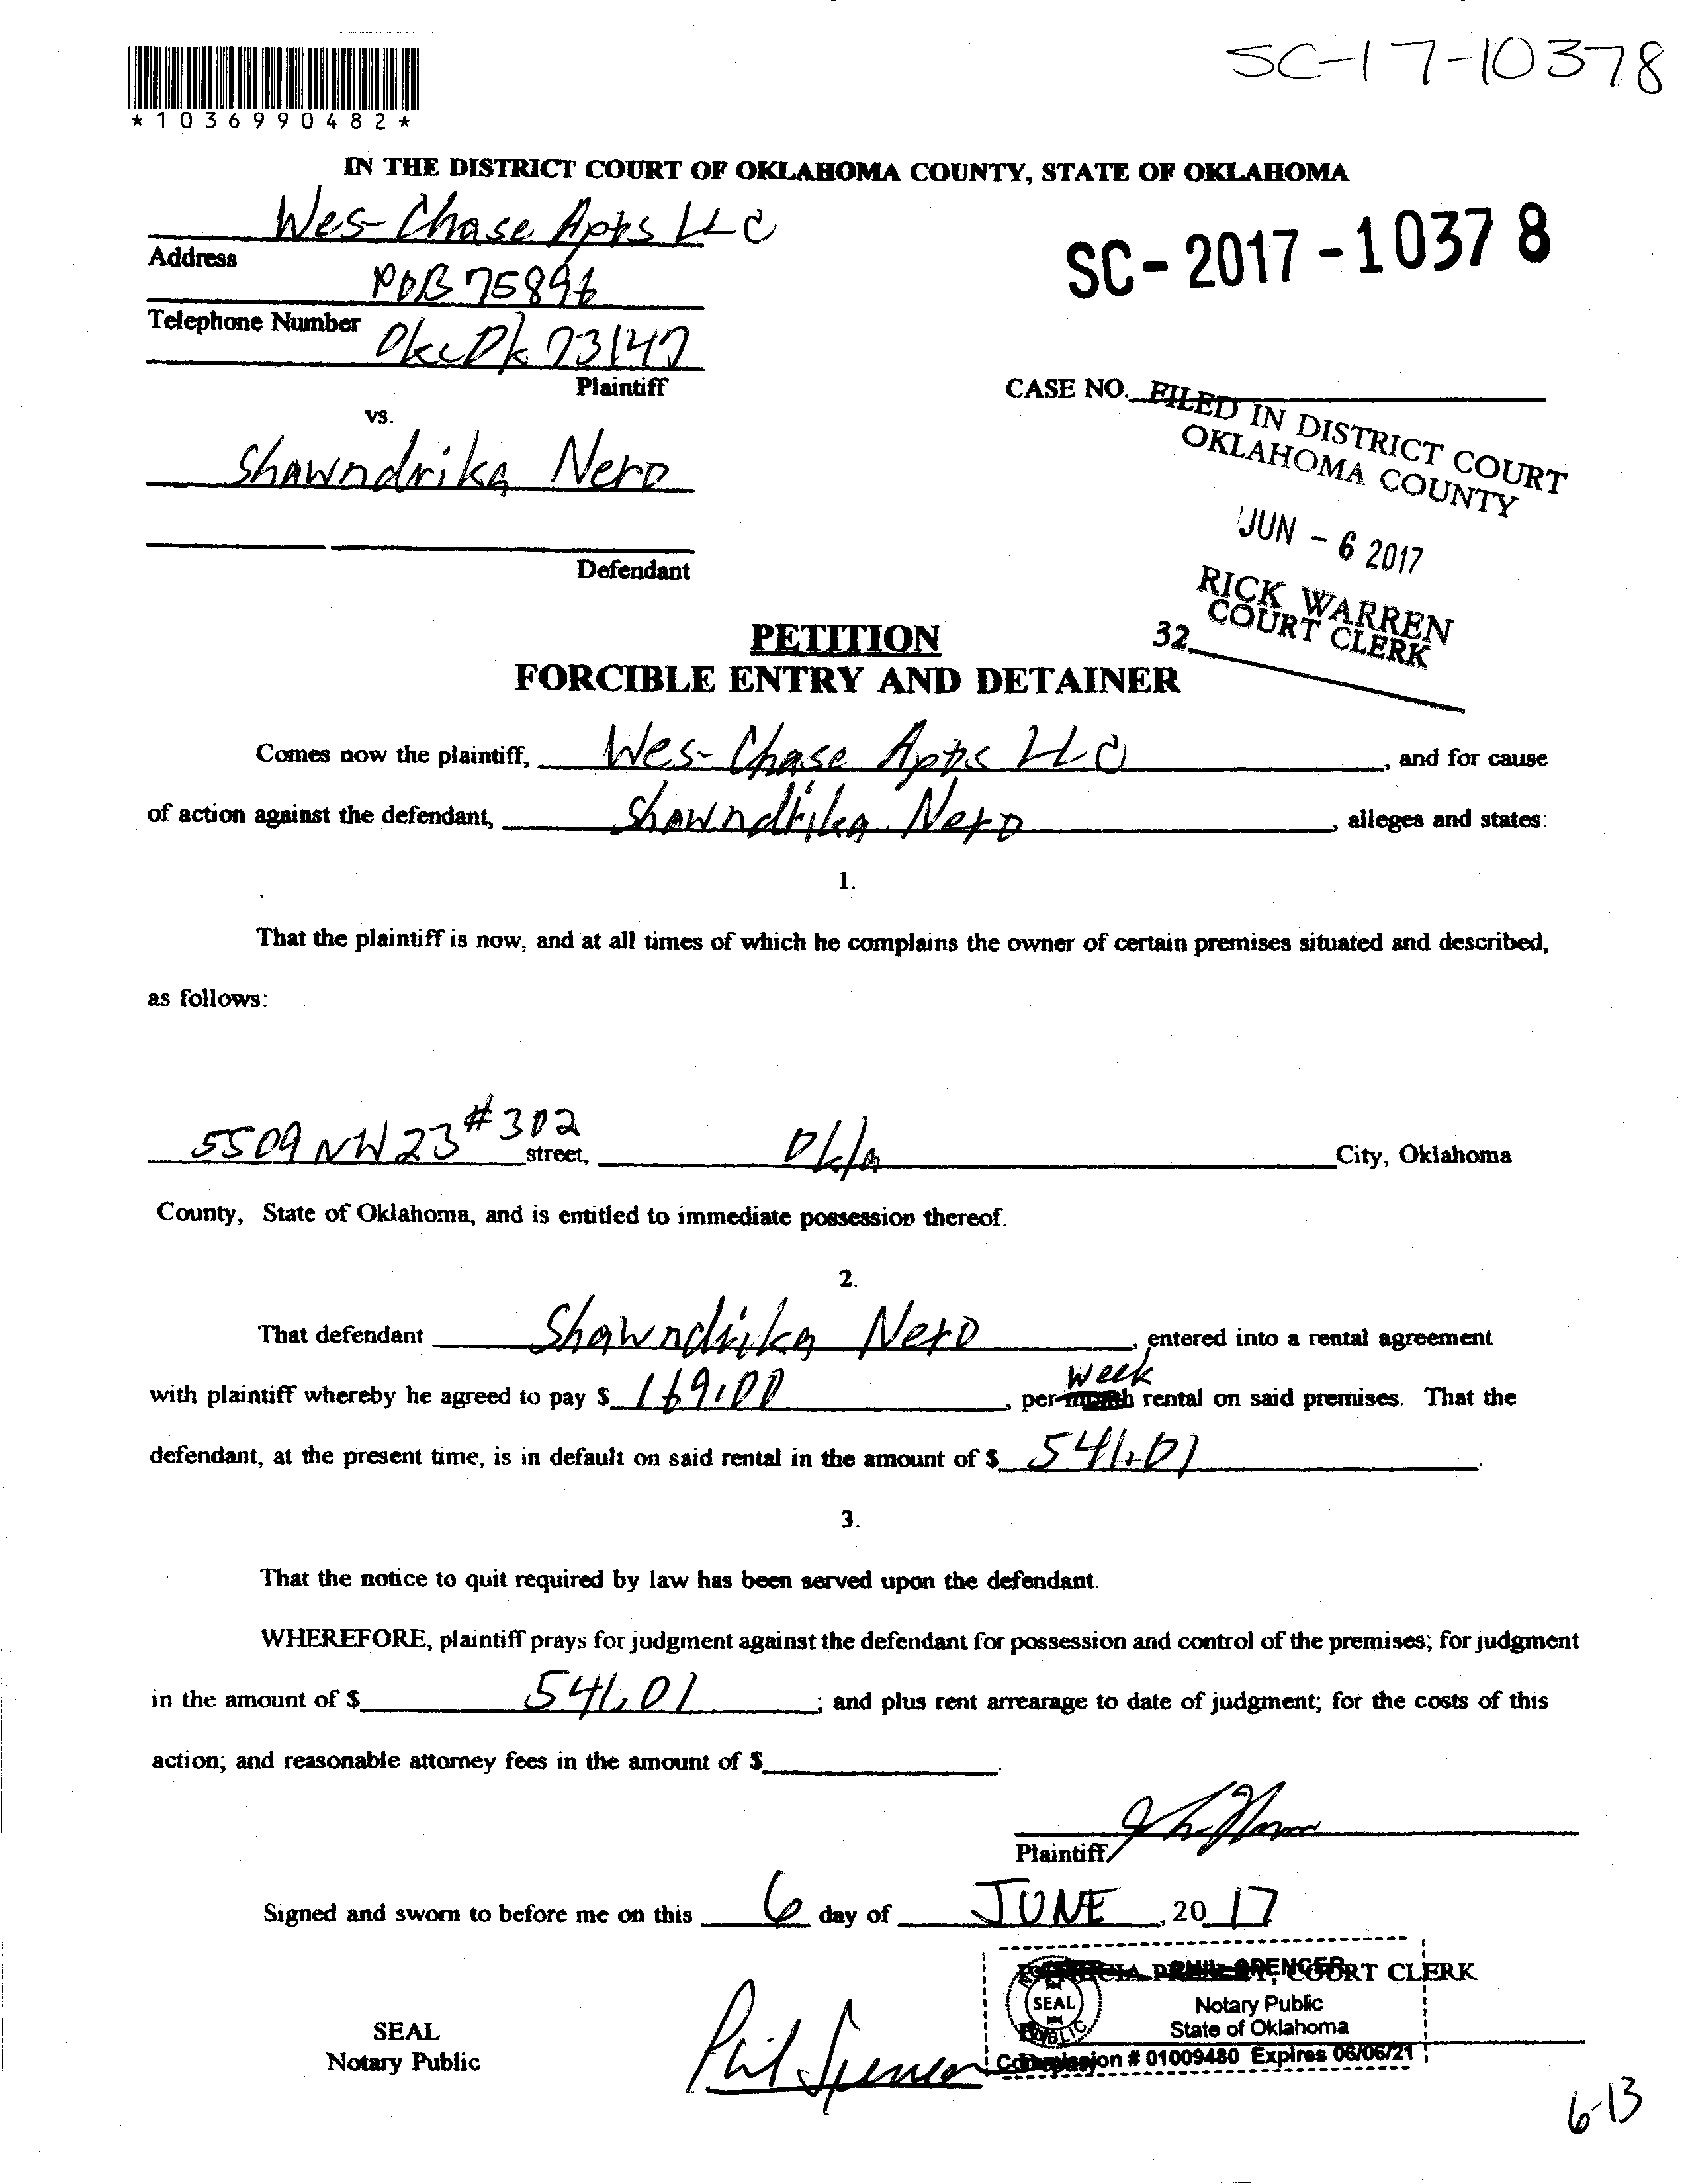 SC-17-10378
*1036990482*
IN THE DISTRICT COURT OF OKLAHOMA COUNTY, STATE OF OKLAHOMA
Wes-Chase Apts LLC
Address
POB 75896
SC-2017-10378
Telephone Number
Okc Ok 73147
Plaintiff
CASE NO.
FILED IN DISTRICT COURT
OKLAHOMA COUNTY
vs.
Shawndrika Nero
JUN - 6 2017
Defendant
RICK WARREN
COURT CLERK
32
PETITION
FORCIBLE ENTRY AND DETAINER
Comes now the plaintiff, Wes-Chase Apts LLC, and for cause
of action against the defendant, Shawndrika Nero, alleges and states:
1.
That the plaintiff is now, and at all times of which he complains the owner of certain premises situated and described,
as follows:
5509 NW 23 #302 street, Okla City, Oklahoma
County, State of Oklahoma, and is entitled to immediate possession thereof.
2.
That defendant Shawndrika Nero, entered into a rental agreement
with plaintiff whereby he agreed to pay $ 169.00, per month week rental on said premises. That the
defendant, at the present time, is in default on said rental in the amount of $ 541.01.
3.
That the notice to quit required by law has been served upon the defendant.
WHEREFORE, plaintiff prays for judgment against the defendant for possession and control of the premises; for judgment
in the amount of $ 541.01; and plus rent arrearage to date of judgment; for the costs of this
action; and reasonable attorney fees in the amount of $
Plaintiff
Signed and sworn to before me on this 6 day of JUNE, 2017
PHIL SPENCER
COURT CLERK
SEAL
Notary Public
State of Oklahoma
Commission # 01009480 Expires 06/06/21
SEAL
Notary Public
Phil Spencer
6-13